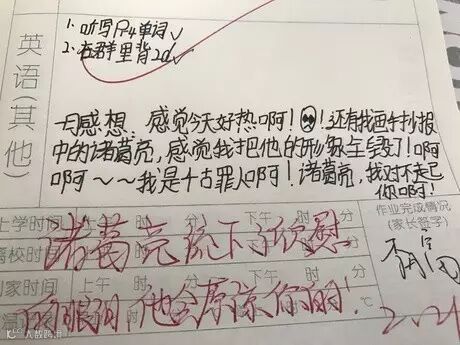 英语(其他)
1. 听写P4单词√
2. 在群里背2d√
一日感想:感觉今天好热啊!!还有我画手抄报
中的诸葛亮,感觉我把他的形象全毁了!啊
啊啊~~我是千古罪人啊!诸葛亮,我对不起
你啊!
作业完成情况
(家长签字)
上学时间 时 分 下午 时 分
诸葛亮流下了欣慰
离校时间
上午 时 分 下午 时 分
的眼泪,他会原谅你的!
℃